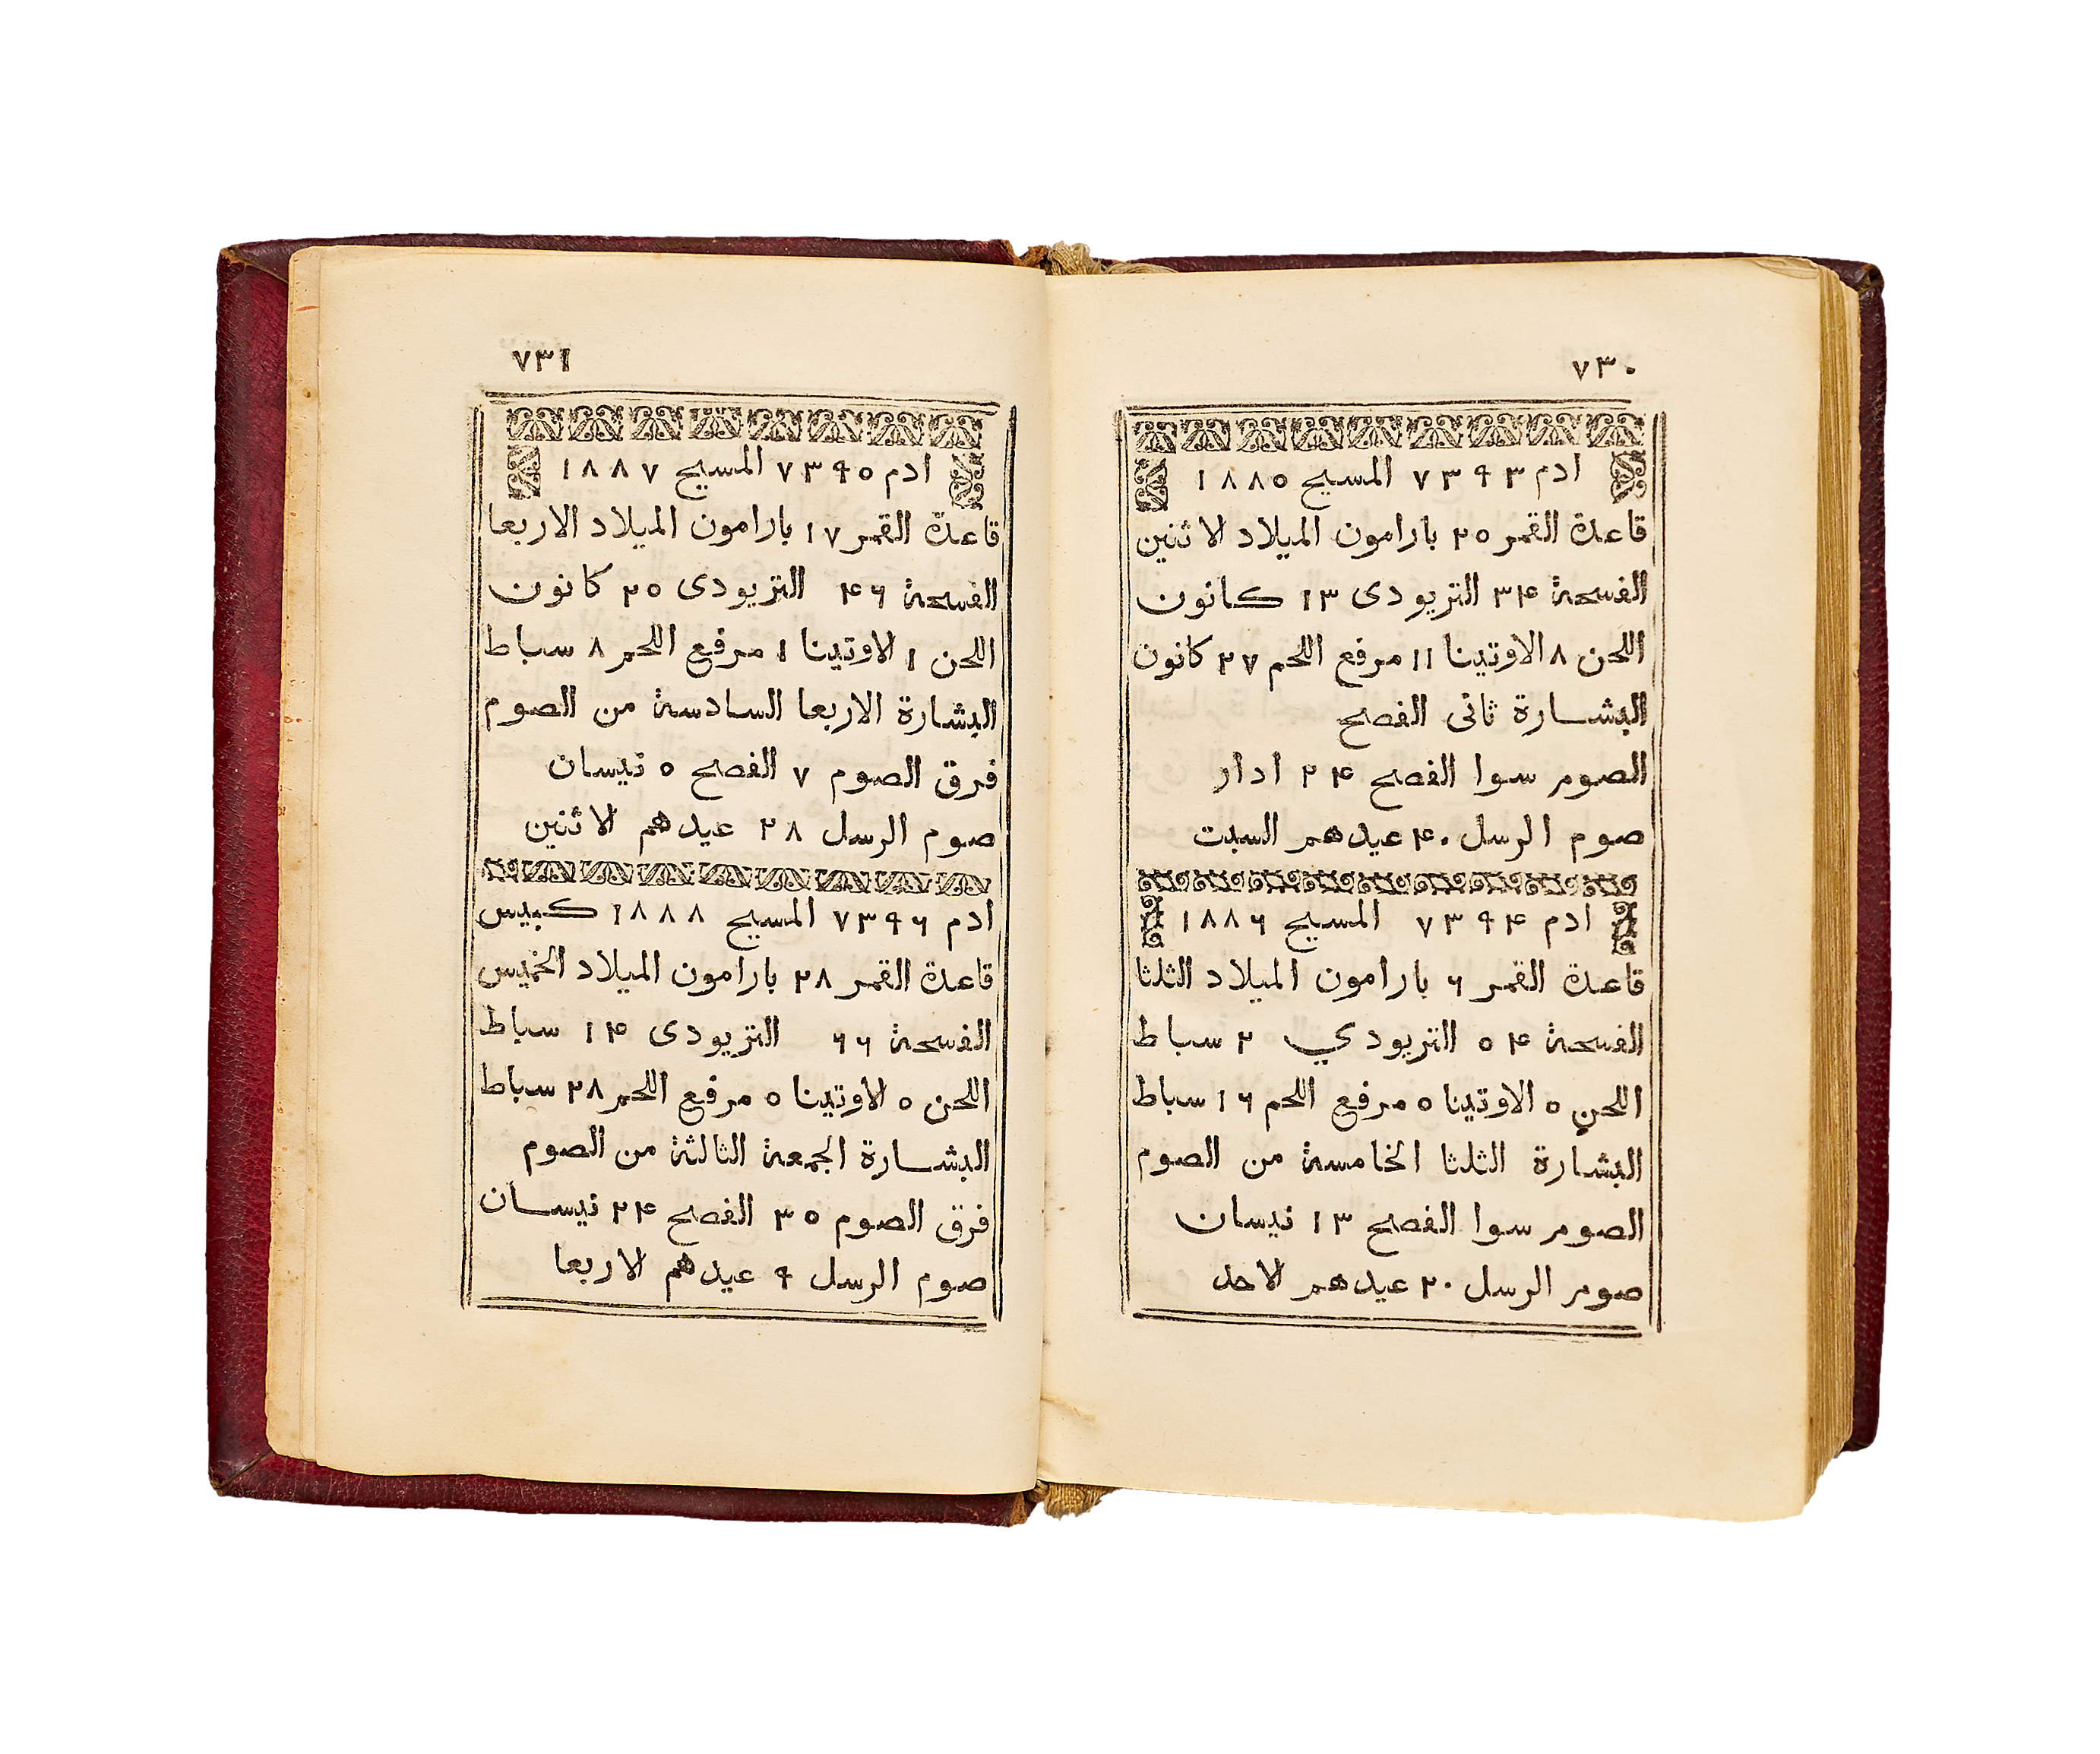 ٧٣٠
ادم ٧٣٩٣ المسيح ١٨٨٥
قاعدة القمر ٢٥ بارامون الميلاد الاثنين
الفسحة ٣٤ التريودى ١٣ كانون
اللحن ٨ الاوتينا ١١ مرفع اللحم ٢٧ كانون
البشارة ثانى الفصح
الصوم سوا الفصح ٢٤ ادار
صوم الرسل ٤٠ عيدهم السبت
ادم ٧٣٩٤ المسيح ١٨٨٦
قاعدة القمر ٦ بارامون الميلاد الثلثا
الفسحة ٥٤ التريودي ٢ سباط
اللحن ٥ الاوتينا ٥ مرفع اللحم ١٦ سباط
البشارة الثلثا الخامسة من الصوم
الصوم سوا الفصح ١٣ نيسان
صوم الرسل ٢٠ عيدهم الاحد
٧٣١
ادم ٧٣٩٥ المسيح ١٨٨٧
قاعدة القمر ١٧ بارامون الميلاد الاربعا
الفسحة ٤٦ التريودى ٢٥ كانون
اللحن ١ الاوتينا ١ مرفع اللحم ٨ سباط
البشارة الاربعا السادسة من الصوم
فرق الصوم ٧ الفصح ٥ نيسان
صوم الرسل ٢٨ عيدهم الاثنين
ادم ٧٣٩٦ المسيح ١٨٨٨ كبيس
قاعدة القمر ٢٨ بارامون الميلاد الخميس
الفسحة ٦٦ التريودى ١٤ سباط
اللحن ٥ الاوتينا ٥ مرفع اللحم ٢٨ سباط
البشارة الجمعة الثالثة من الصوم
فرق الصوم ٣٥ الفصح ٢٤ نيسان
صوم الرسل ٩ عيدهم الاربعا